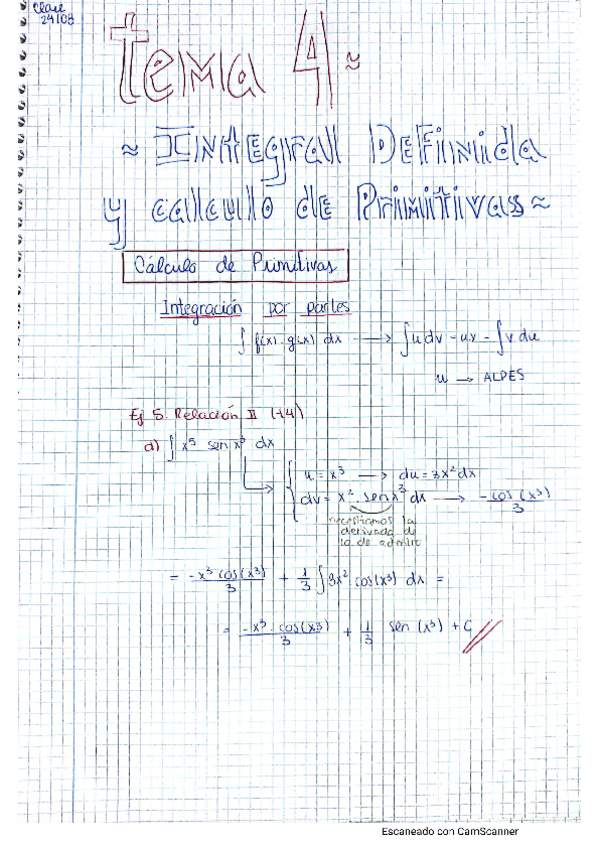 Clase
24/03
Tema 4 ≈
≈ Integral Definida
y calculo de Primitivas ≈
Cálculo de Primitivas
Integración por partes
∫ f(x) · g(x) dx → ∫u dv = uv - ∫v du
u → ALPES
Ej 5. Relación II (T4)
d) ∫ x⁵ sen x³ dx
u = x³ → du = 3x² dx
dv = x² · sen x³ dx → -cos(x³)/3
necesitamos la
derivada de
lo de adentro
= -x³ cos(x³)/3 + 1/3 ∫ 3x² cos(x³) dx =
= -x³ · cos(x³)/3 + 1/3 sen (x³) + C
Escaneado con CamScanner